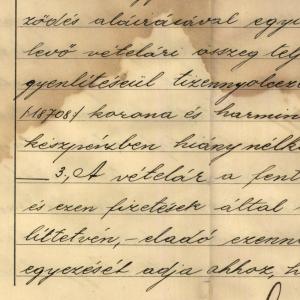 ződés aláírásával egyi
levő vételári összeg tel
gyenlítéséül tizennyolcez
/18708/ korona és harmin
készpénzben hiány nélkü
3., A vételár a fent
és ezen fizetések által
líttetvén, - eladó ezenn
egyezését adja ahhoz, h